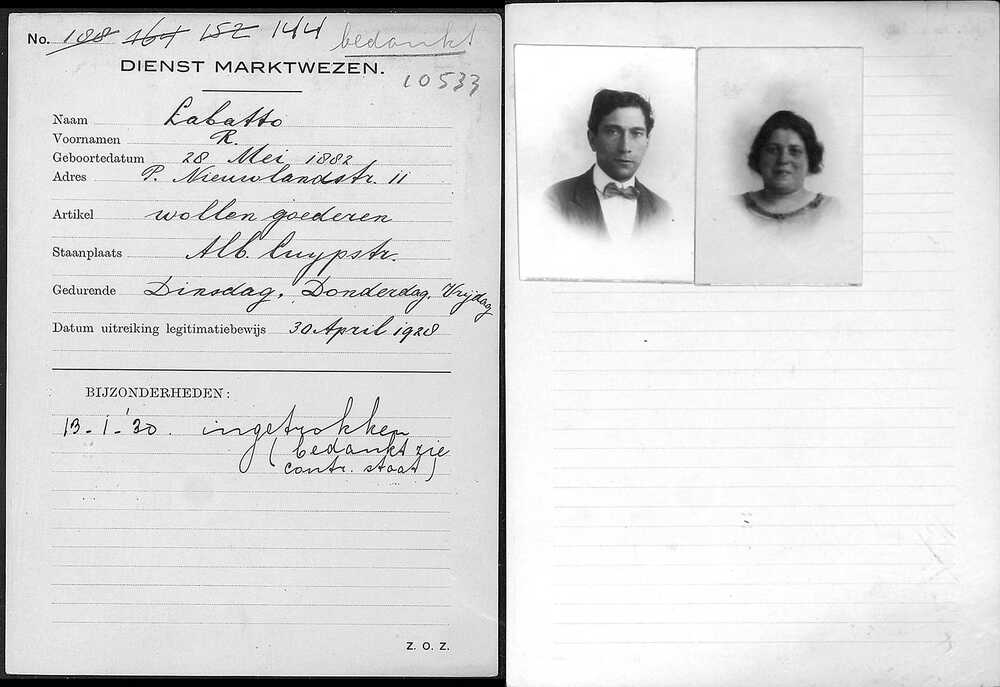 No. 188 164 152 144 bedankt
DIENST MARKTWEZEN.
10533
Naam Labatto
Voornamen R.
Geboortedatum 28 Mei 1882
Adres P. Nieuwlandstr. 11
Artikel wollen goederen
Staanplaats Alb. Cuypstr.
Gedurende Dinsdag, Donderdag, Vrijdag
Datum uitreiking legitimatiebewijs 30 April 1928
BIJZONDERHEDEN:
13-1-'30. ingetrokken
(bedankt zie
contr. staat)
Z. O. Z.